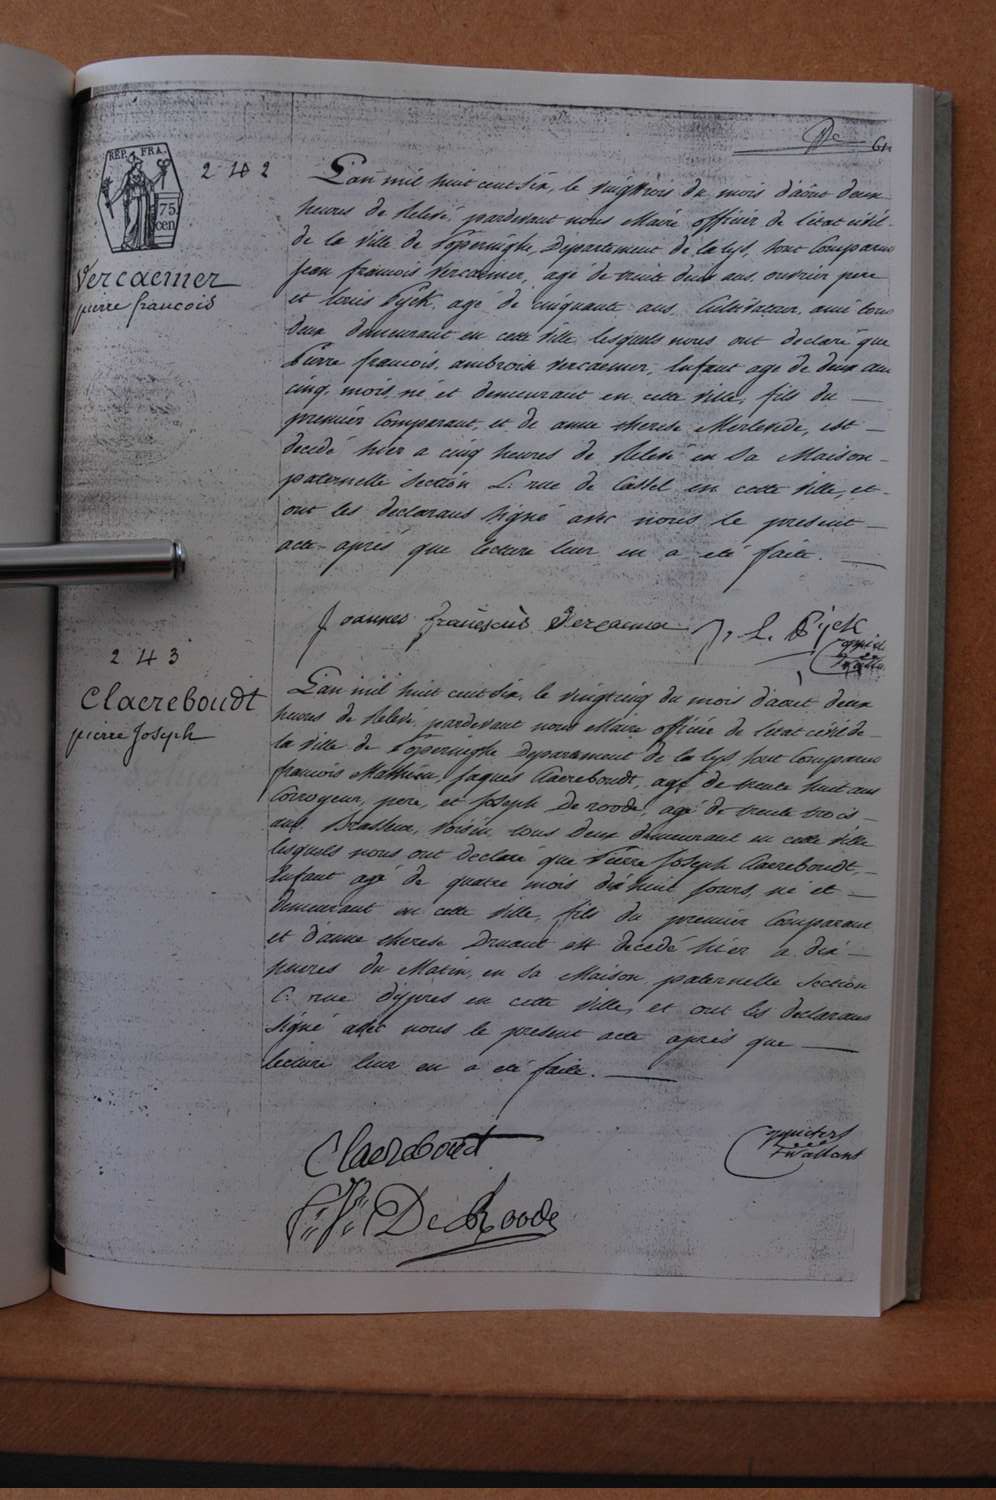 61
REP. FRA.
75
cen
242
Vercaemer
pierre francois
L'an mil huit cent six, le vingt trois du mois d'août deux
heures de relevé, pardevant nous Maire officier de l'etat civil
de la ville de Poperinghe, Departement de la lys, sont Comparus
Jean francois Vercaemer, agé de trente deux ans, ouvrier, pere
et louis Pyck, agé de cinquante ans, Cultivateur, ami tous
deux demeurant en cette ville, lesquels nous ont declaré que
Pierre francois, ambroise Vercaemer, Enfant agé de deux ans
cinq mois, né et demeurant en cette ville, fils du
premier Comparant, et de anne therese, est
decedé hier a cinq heures de relevé en sa Maison
paternelle section L. rue de Cassel en cette ville, et
ont les declarans signé avec nous le present
acte après que lecture leur en a eté faite.
Joannes franciscus Vercaemer J. L. Pyck
243
Claereboudt
pierre Joseph
L'an mil huit cent six, le vingt cinq du mois d'aout deux
heures de relevé, pardevant nous Maire officier de l'etat civil de
la ville de Poperinghe Departement de la lys, sont Comparus
francois Mathieu, Jaques Claereboudt, agé de trente huit ans
Corroyeur, pere, et Joseph De roode, agé de trente trois
ans, Brasseur, voisin, tous deux demeurant en cette ville
lesquels nous ont declaré que Pierre Joseph Claereboudt,
Enfant agé de quatre mois dix huit jours, né et
demeurant en cette ville, fils du premier Comparant
et d'anne therese Druant est decedé hier a dix
heures du Matin, en sa Maison paternelle section
C. rue d'ypres en cette ville, et ont les declarans
signé avec nous le present acte après que
lecture leur en a eté faite.
Claereboudt
De Roode